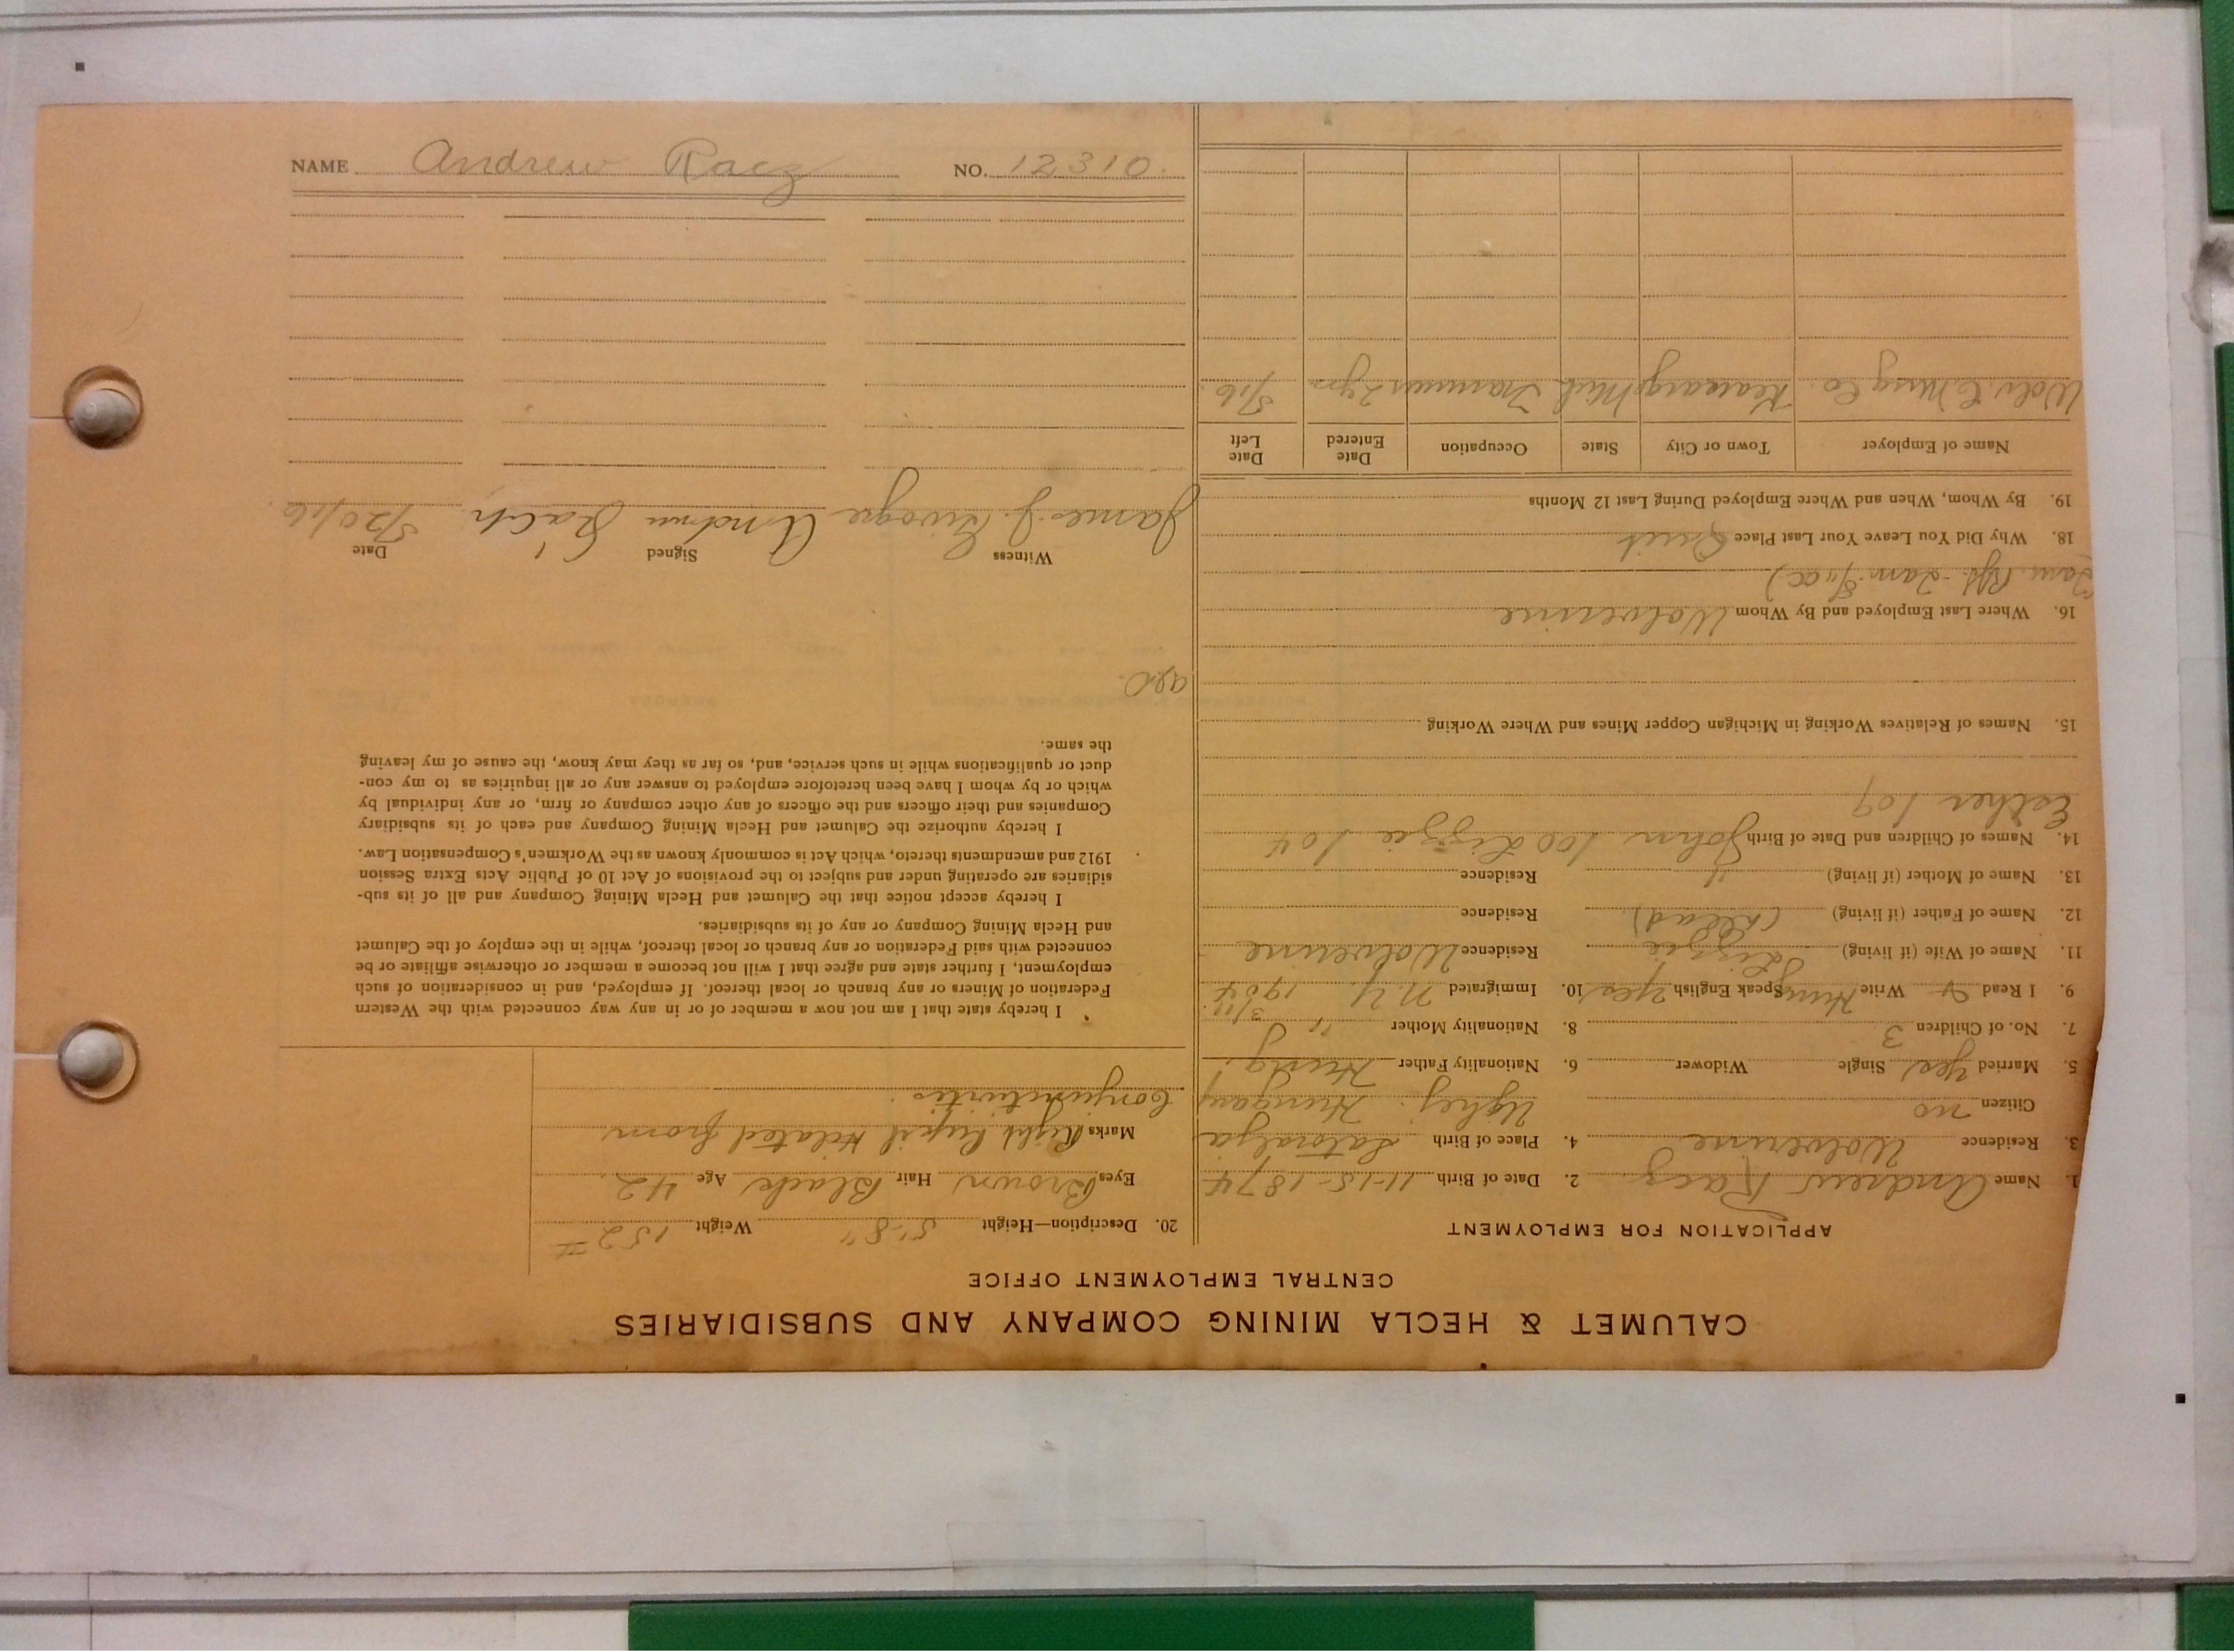 CALUMET & HECLA MINING COMPANY AND SUBSIDIARIES
CENTRAL EMPLOYMENT OFFICE
APPLICATION FOR EMPLOYMENT
1. Name Andrew Racz 2. Date of Birth 11-15-1874
3. Residence Wolverine 4. Place of Birth Satoralja
Citizen no Ujhely Hungary
5. Married yes Single Widower 6. Nationality Father Hung.
7. No. of Children 3 8. Nationality Mother "
9. I Read & Write Hung Speak English yes 10. Immigrated N.Y. 3/11 1904
11. Name of Wife (if living) Lizzie Residence Wolverine
12. Name of Father (if living) (dead) Residence
13. Name of Mother (if living) " Residence
14. Names of Children and Date of Birth John 100 Lizzie 104
Esther 109
15. Names of Relatives Working in Michigan Copper Mines and Where Working
16. Where Last Employed and By Whom Wolverine
18. Why Did You Leave Your Last Place Quit
19. By Whom, When and Where Employed During Last 12 Months
Name of Employer Town or City State Occupation Date Entered Date Left
Wolv. C. Minig Co. Kearsarge Mich Trammer 2 yrs 5/16
20. Description—Height 5'-8" Weight 152 #
Eyes Brown Hair Black Age 42
Marks Right Pupil dilated from
Conjunctivitis
I hereby state that I am not now a member of or in any way connected with the Western
Federation of Miners or any branch or local thereof. If employed, and in consideration of such
employment, I further state and agree that I will not become a member or otherwise affiliate or be
connected with said Federation or any branch or local thereof, while in the employ of the Calumet
and Hecla Mining Company or any of its subsidiaries.
I hereby accept notice that the Calumet and Hecla Mining Company and all of its sub-
sidiaries are operating under and subject to the provisions of Act 10 of Public Acts Extra Session
1912 and amendments thereto, which Act is commonly known as the Workmen's Compensation Law.
I hereby authorize the Calumet and Hecla Mining Company and each of its subsidiary
Companies and their officers and the officers of any other company or firm, or any individual by
which or by whom I have been heretofore employed to answer any or all inquiries as to my con-
duct or qualifications while in such service, and, so far as they may know, the cause of my leaving
the same.
Witness Signed Date
James J. Andrew 5/20/16
NAME Andrew Racz NO. 12310.